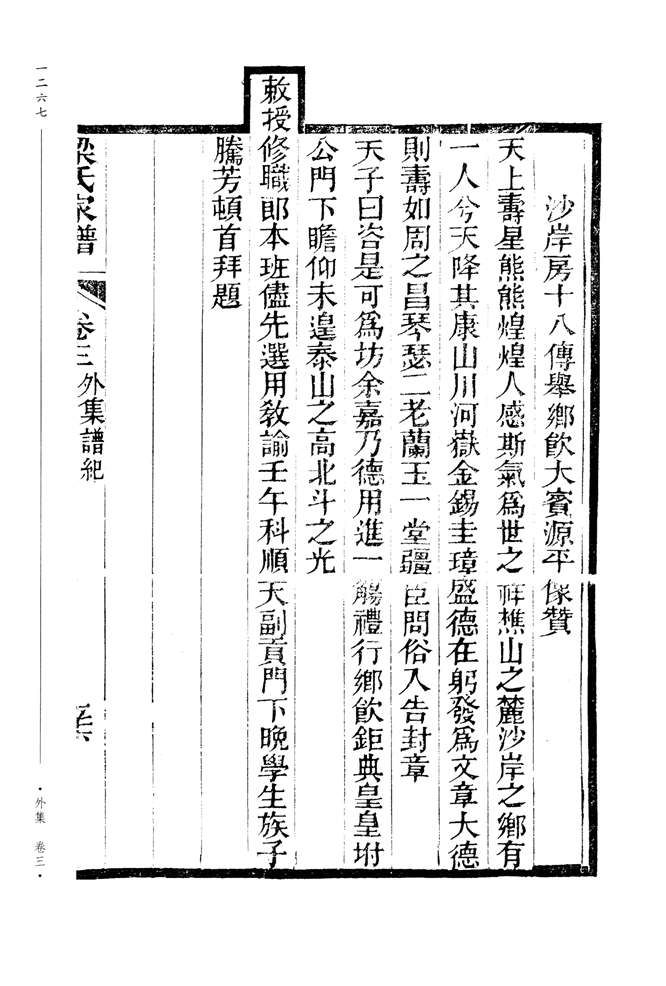 沙岸房十八傳舉鄉飲大賓源平像贊
天上壽星熊熊煌煌人感斯氣爲世之祥樵山之麓沙岸之鄉有
一人兮天降其康山川河嶽金錫圭璋盛德在躬發爲文章大德
則壽如周之昌琴瑟二老蘭玉一堂疆臣問俗入告封章
天子曰咨是可爲坊余嘉乃德用進一觴禮行鄉飲鉅典皇皇坿
公門下瞻仰未遑泰山之高北斗之光
敕授修職郎本班儘先選用敎諭壬午科順天副貢門下晚學生族子
騰芳頓首拜題
梁氏家譜 卷三 外集譜紀
一二六七
·外集 卷三·